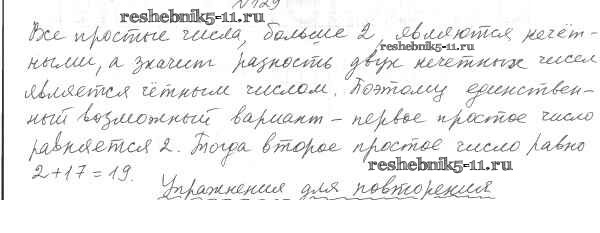 № 129
reshebnik5-11.ru
Все простые числа, больше 2, являются нечёт-
reshebnik5-11.ru
ными, а значит разность двух нечетных чисел
является чётным числом. Поэтому единствен-
ный возможный вариант – первое простое число
равняется 2. Тогда второе простое число равно
reshebnik5-11.ru
2+17=19.
Упражнения для повторения